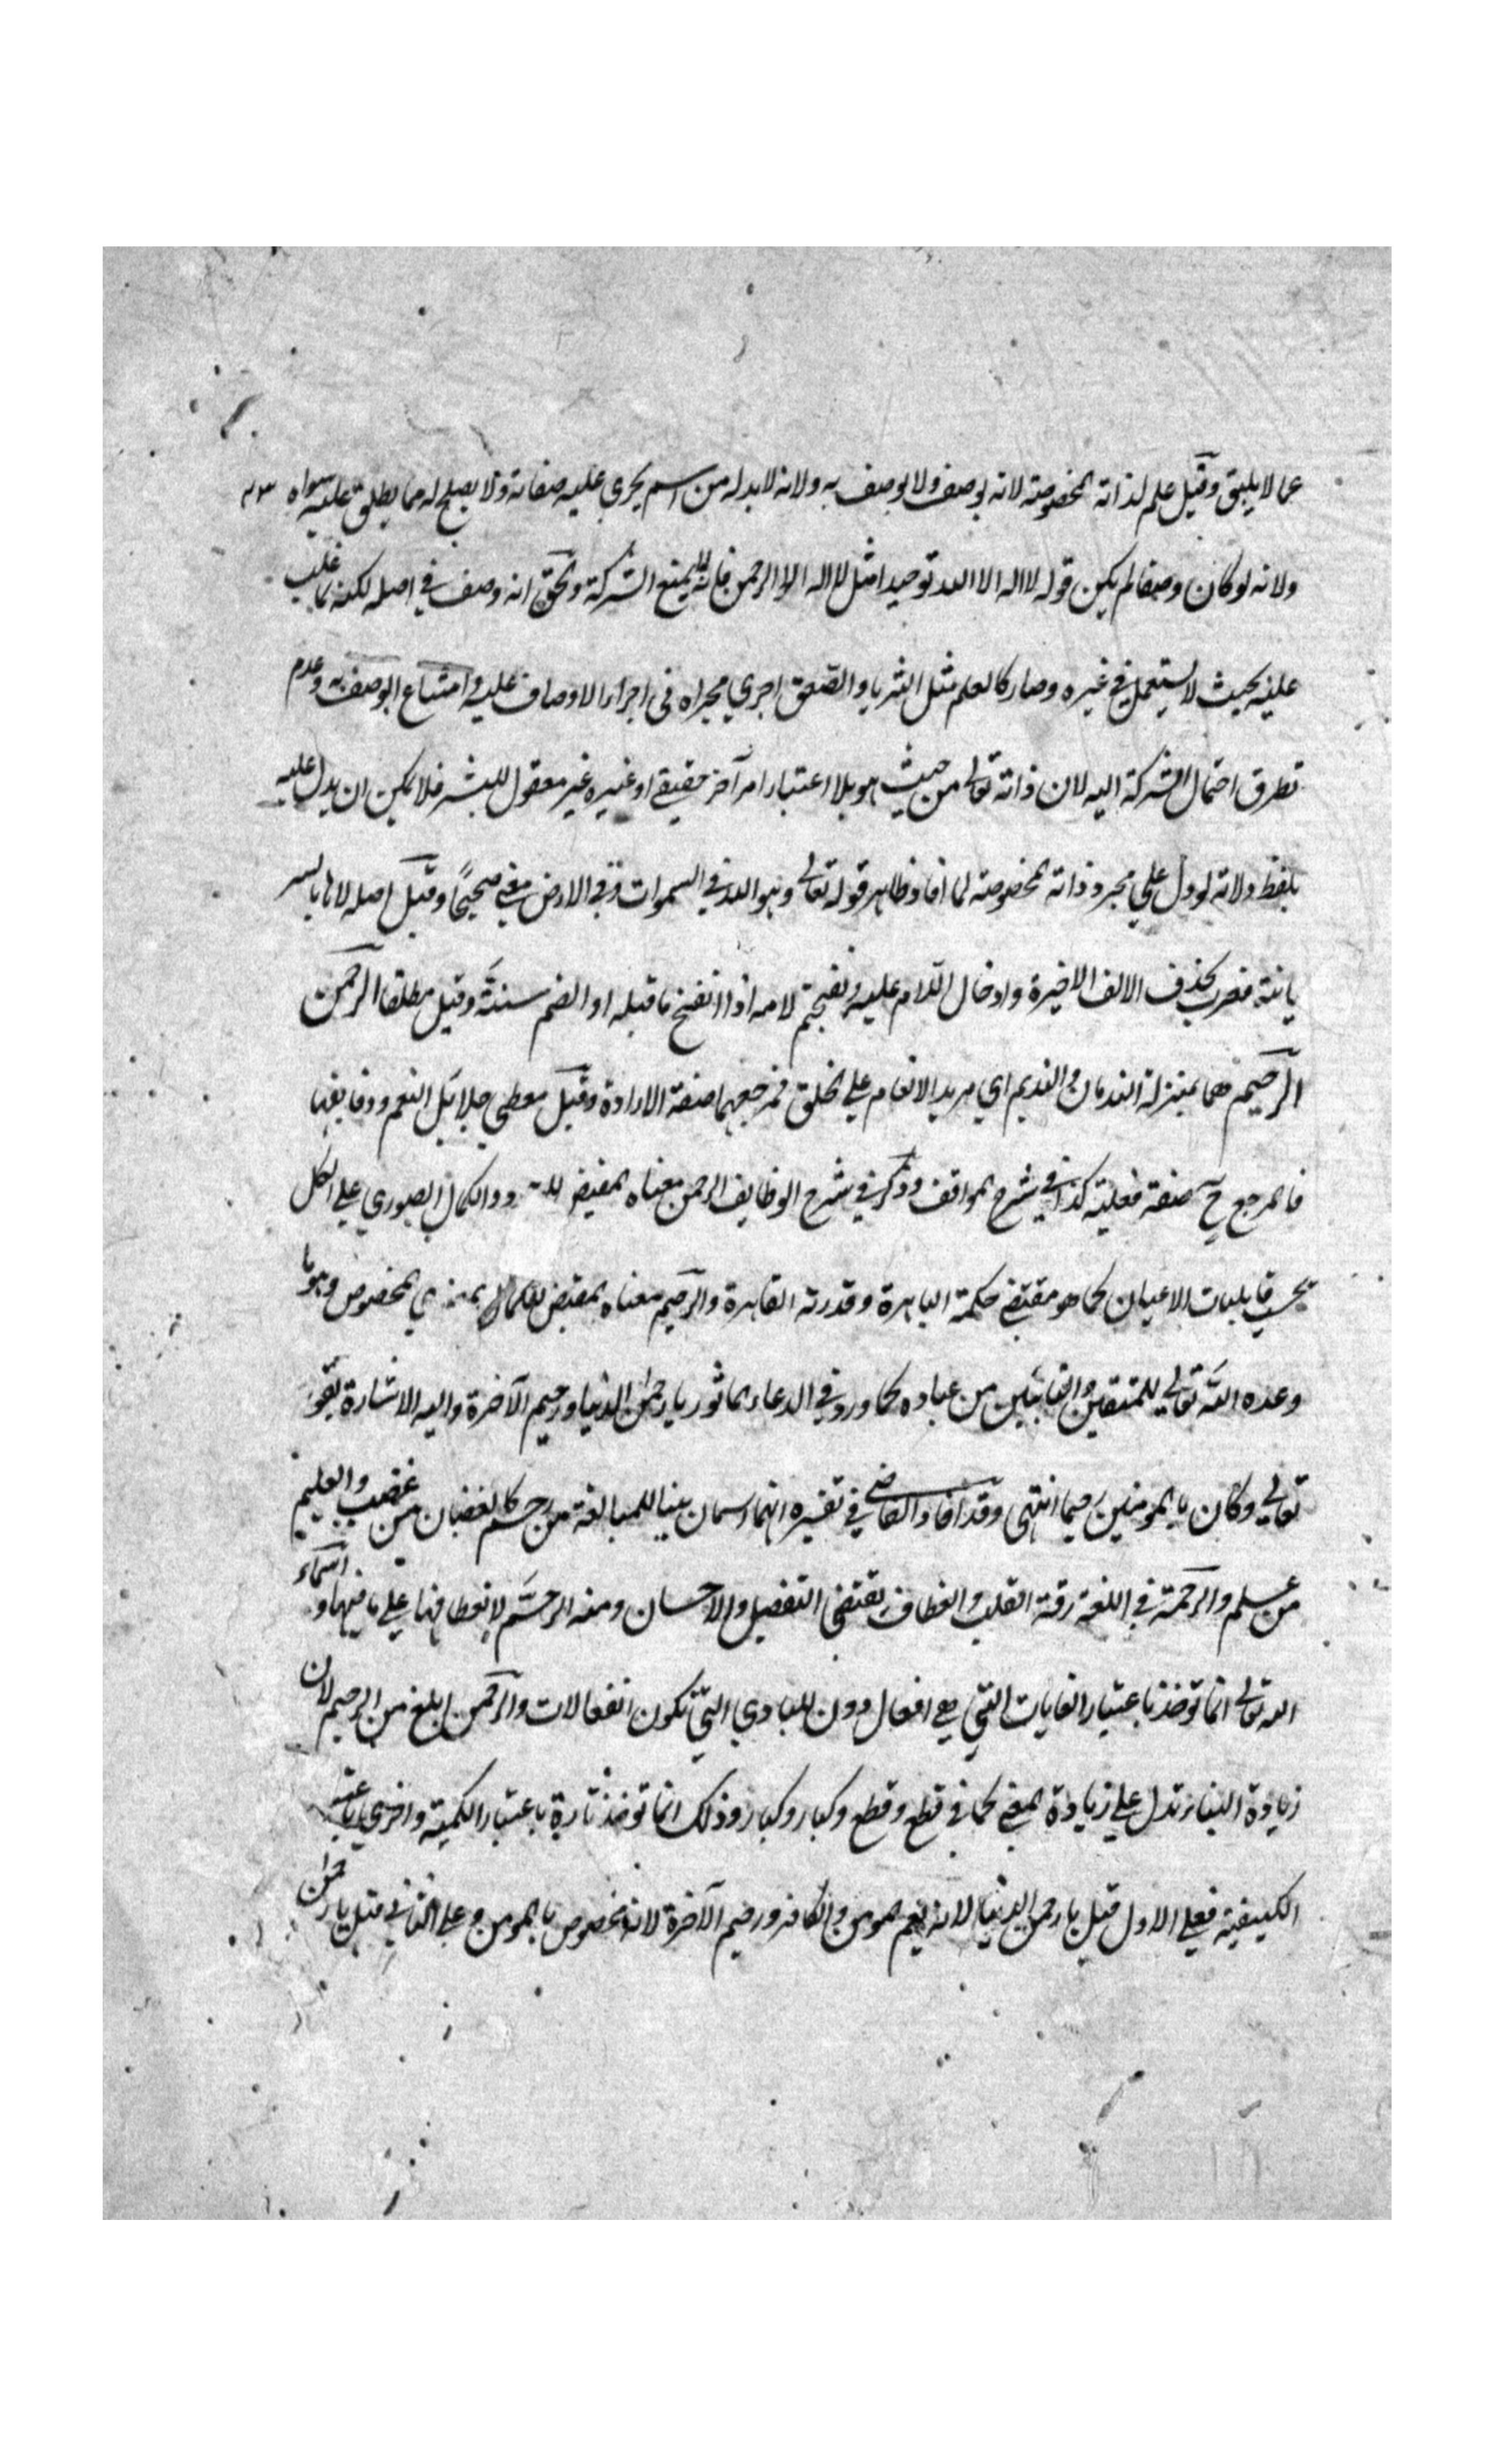 عما لا يليق وقيل علم لذاته المخصوصة لانه يوصف ولا يوصف به ولانه لا بد له من اسم يجري عليه صفاته ولا يصلح له مما يطلق عليه سواه
ولانه لو كان وصفا لم يكن قوله لا اله الا الله توحيدا مثل لا اله الا الرحمن فانه لا يمنع الشركة والحق انه وصف في اصله لكنه لما غلب
عليه بحيث لا يستعمل في غيره وصار كالعلم مثل الثريا والصعق اجري مجراه في اجراء الاوصاف عليه وامتناع الوصف به وعدم
تطرق احتمال الشركة اليه لان ذاته تعالى من حيث هو بلا اعتبار امر آخر حقيقي او غيره غير معقول للبشر فلا يمكن ان يدل عليه
بلفظ ولانه لو دل على مجرد ذاته المخصوصة لما افاد ظاهر قوله تعالى وهو الله في السموات وفي الارض معنى صحيحًا وقيل اصله لاها بالسر
يانية فعرب بحذف الالف الاخيرة وادخال اللام عليه وتفخيم لامه اذا انفتح ما قبله او انضم سنة وقيل مطلقا الرحمن
الرحيم هما بمنزلة الندمان والنديم اي مريد الانعام على الخلق فمرجعهما صفة الارادة وقيل معطي جلايل النعم ودقايقها
فالمرجع ح صفة فعلية كذا في شرح المواقف وذكر في شرح الوظايف الرحمن معناه المفيض للـ ود والكمال الصوري على الكل
بحسب قابليات الاعيان كما هو مقتضى حكمة الباهرة وقدرته القاهرة والرحيم معناه المفيض للكمال المعنوي المخصوص وهو ما
وعده الله تعالى للمتقين والقانتين من عباده كما ورد في الدعاء الماثور يا رحمن الدنيا ورحيم الآخرة واليه الاشارة بقوله
تعالى وكان بالمومنين رحيما انتهى وقد افاد القاضي في تفسيره انهما اسمان بنيا للمبالغة من رحم كالغضبان من غضب والعليم
من علم والرحمة في اللغة رقة القلب وانعطاف يقتضي التفضل والاحسان ومنه الرحم لانعطافها على ما فيها واسماء
الله تعالى انما توخذ باعتبار الغايات التي هي افعال دون المبادي التي تكون انفعالات والرحمن ابلغ من الرحيم لان
زيادة البناء تدل على زيادة المعنى كما في قطع وقطع وكبار وكبار وذلك انما توخذ تارة باعتبار الكمية واخرى باعتبار
الكيفية فعلى الاول قيل يا رحمن الدنيا لانه يعم المومن والكافر ورحيم الآخرة لانه مخصوص بالمومن وعلى الثاني قيل يا رحمن